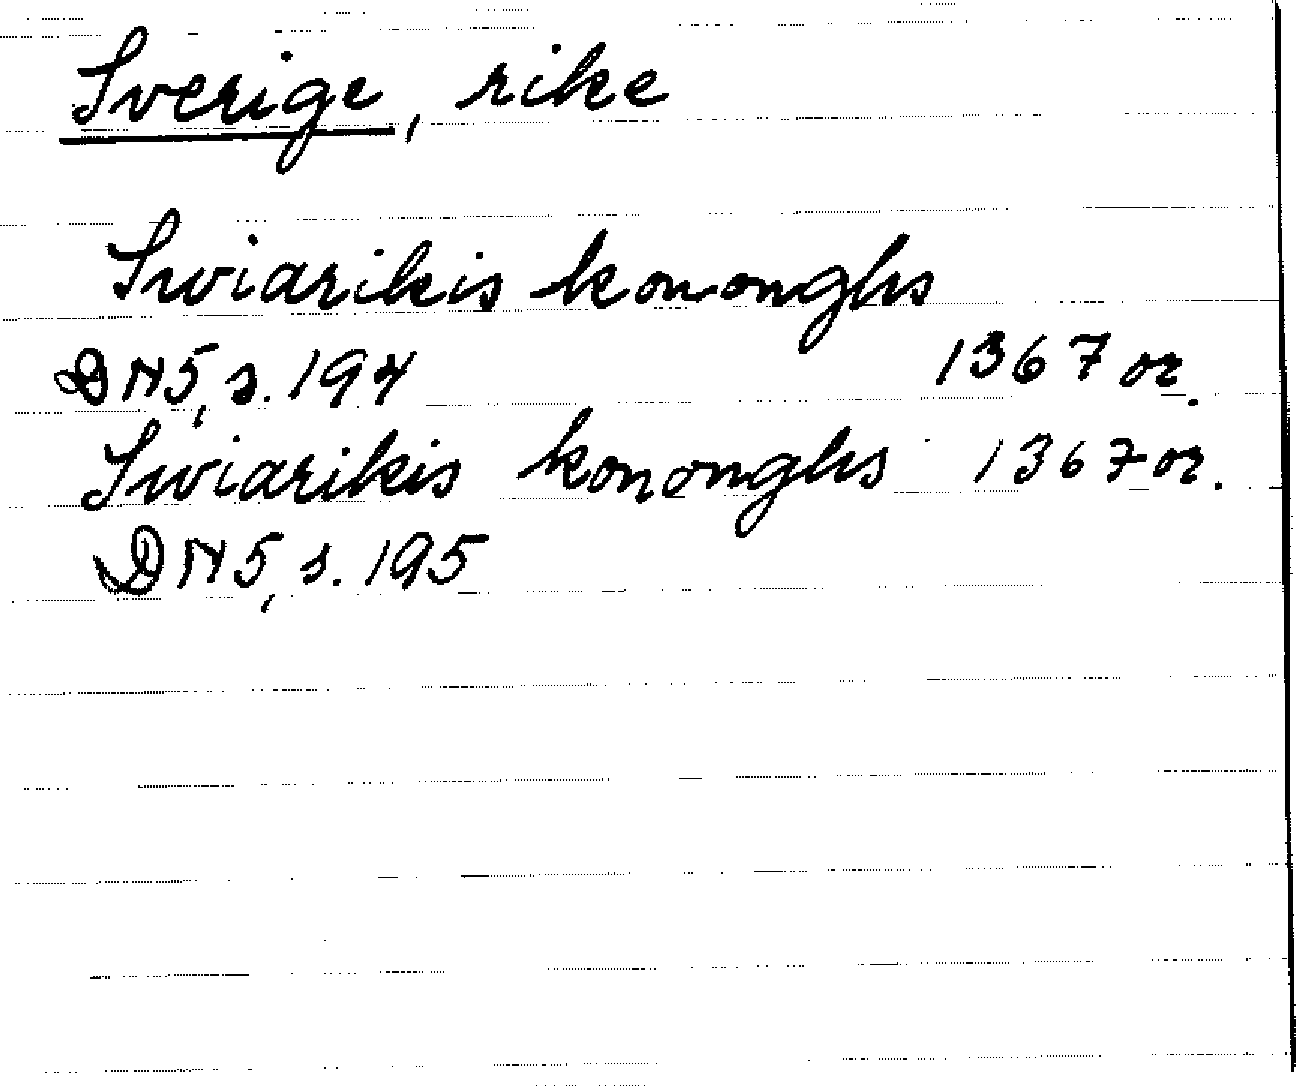 Sverige, rike
Swiarikis kononghs
DN5, s. 194 1367 or.
Swiarikis kononghs 1367 or.
DN5, s. 195